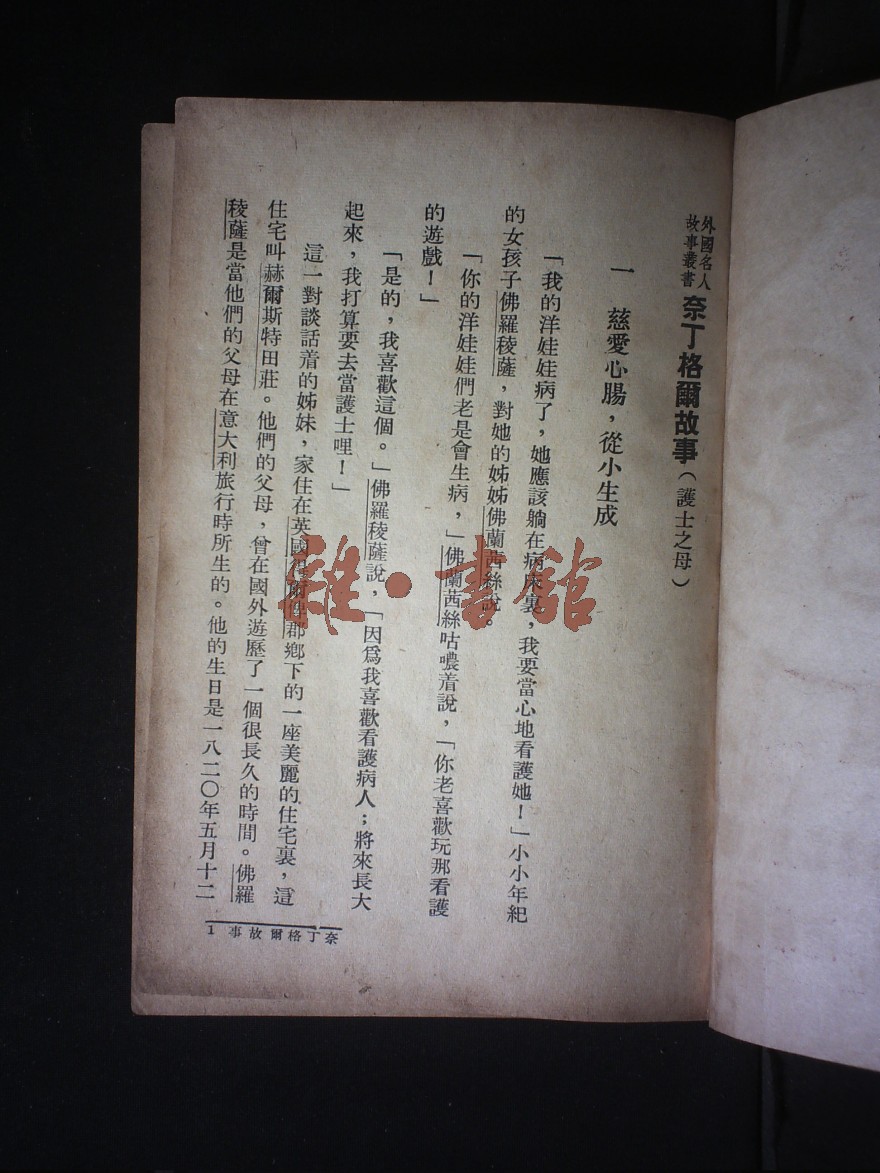 外國名人
故事叢書
奈丁格爾故事(護士之母)
一 慈愛心腸,從小生成
「我的洋娃娃病了,她應該躺在病床裏,我要當心地看護她!」小小年紀
的女孩子佛羅稜薩,對她的姊姊佛蘭茜絲說。
「你的洋娃娃們老是會生病,」佛蘭茜絲咕噥着說,「你老喜歡玩那看護
的遊戲!」
「是的,我喜歡這個。」佛羅稜薩說,「因爲我喜歡看護病人;將來長大
起來,我打算要去當護士哩!」
這一對談話着的姊妹,家住在英國得爾俾郡鄉下的一座美麗的住宅裏,這
住宅叫赫爾斯特田莊。他們的父母,曾在國外遊歷了一個很長久的時間。佛羅
稜薩是當他們的父母在意大利旅行時所生的。他的生日是一八二〇年五月十二
奈丁格爾故事 1
雜·書館